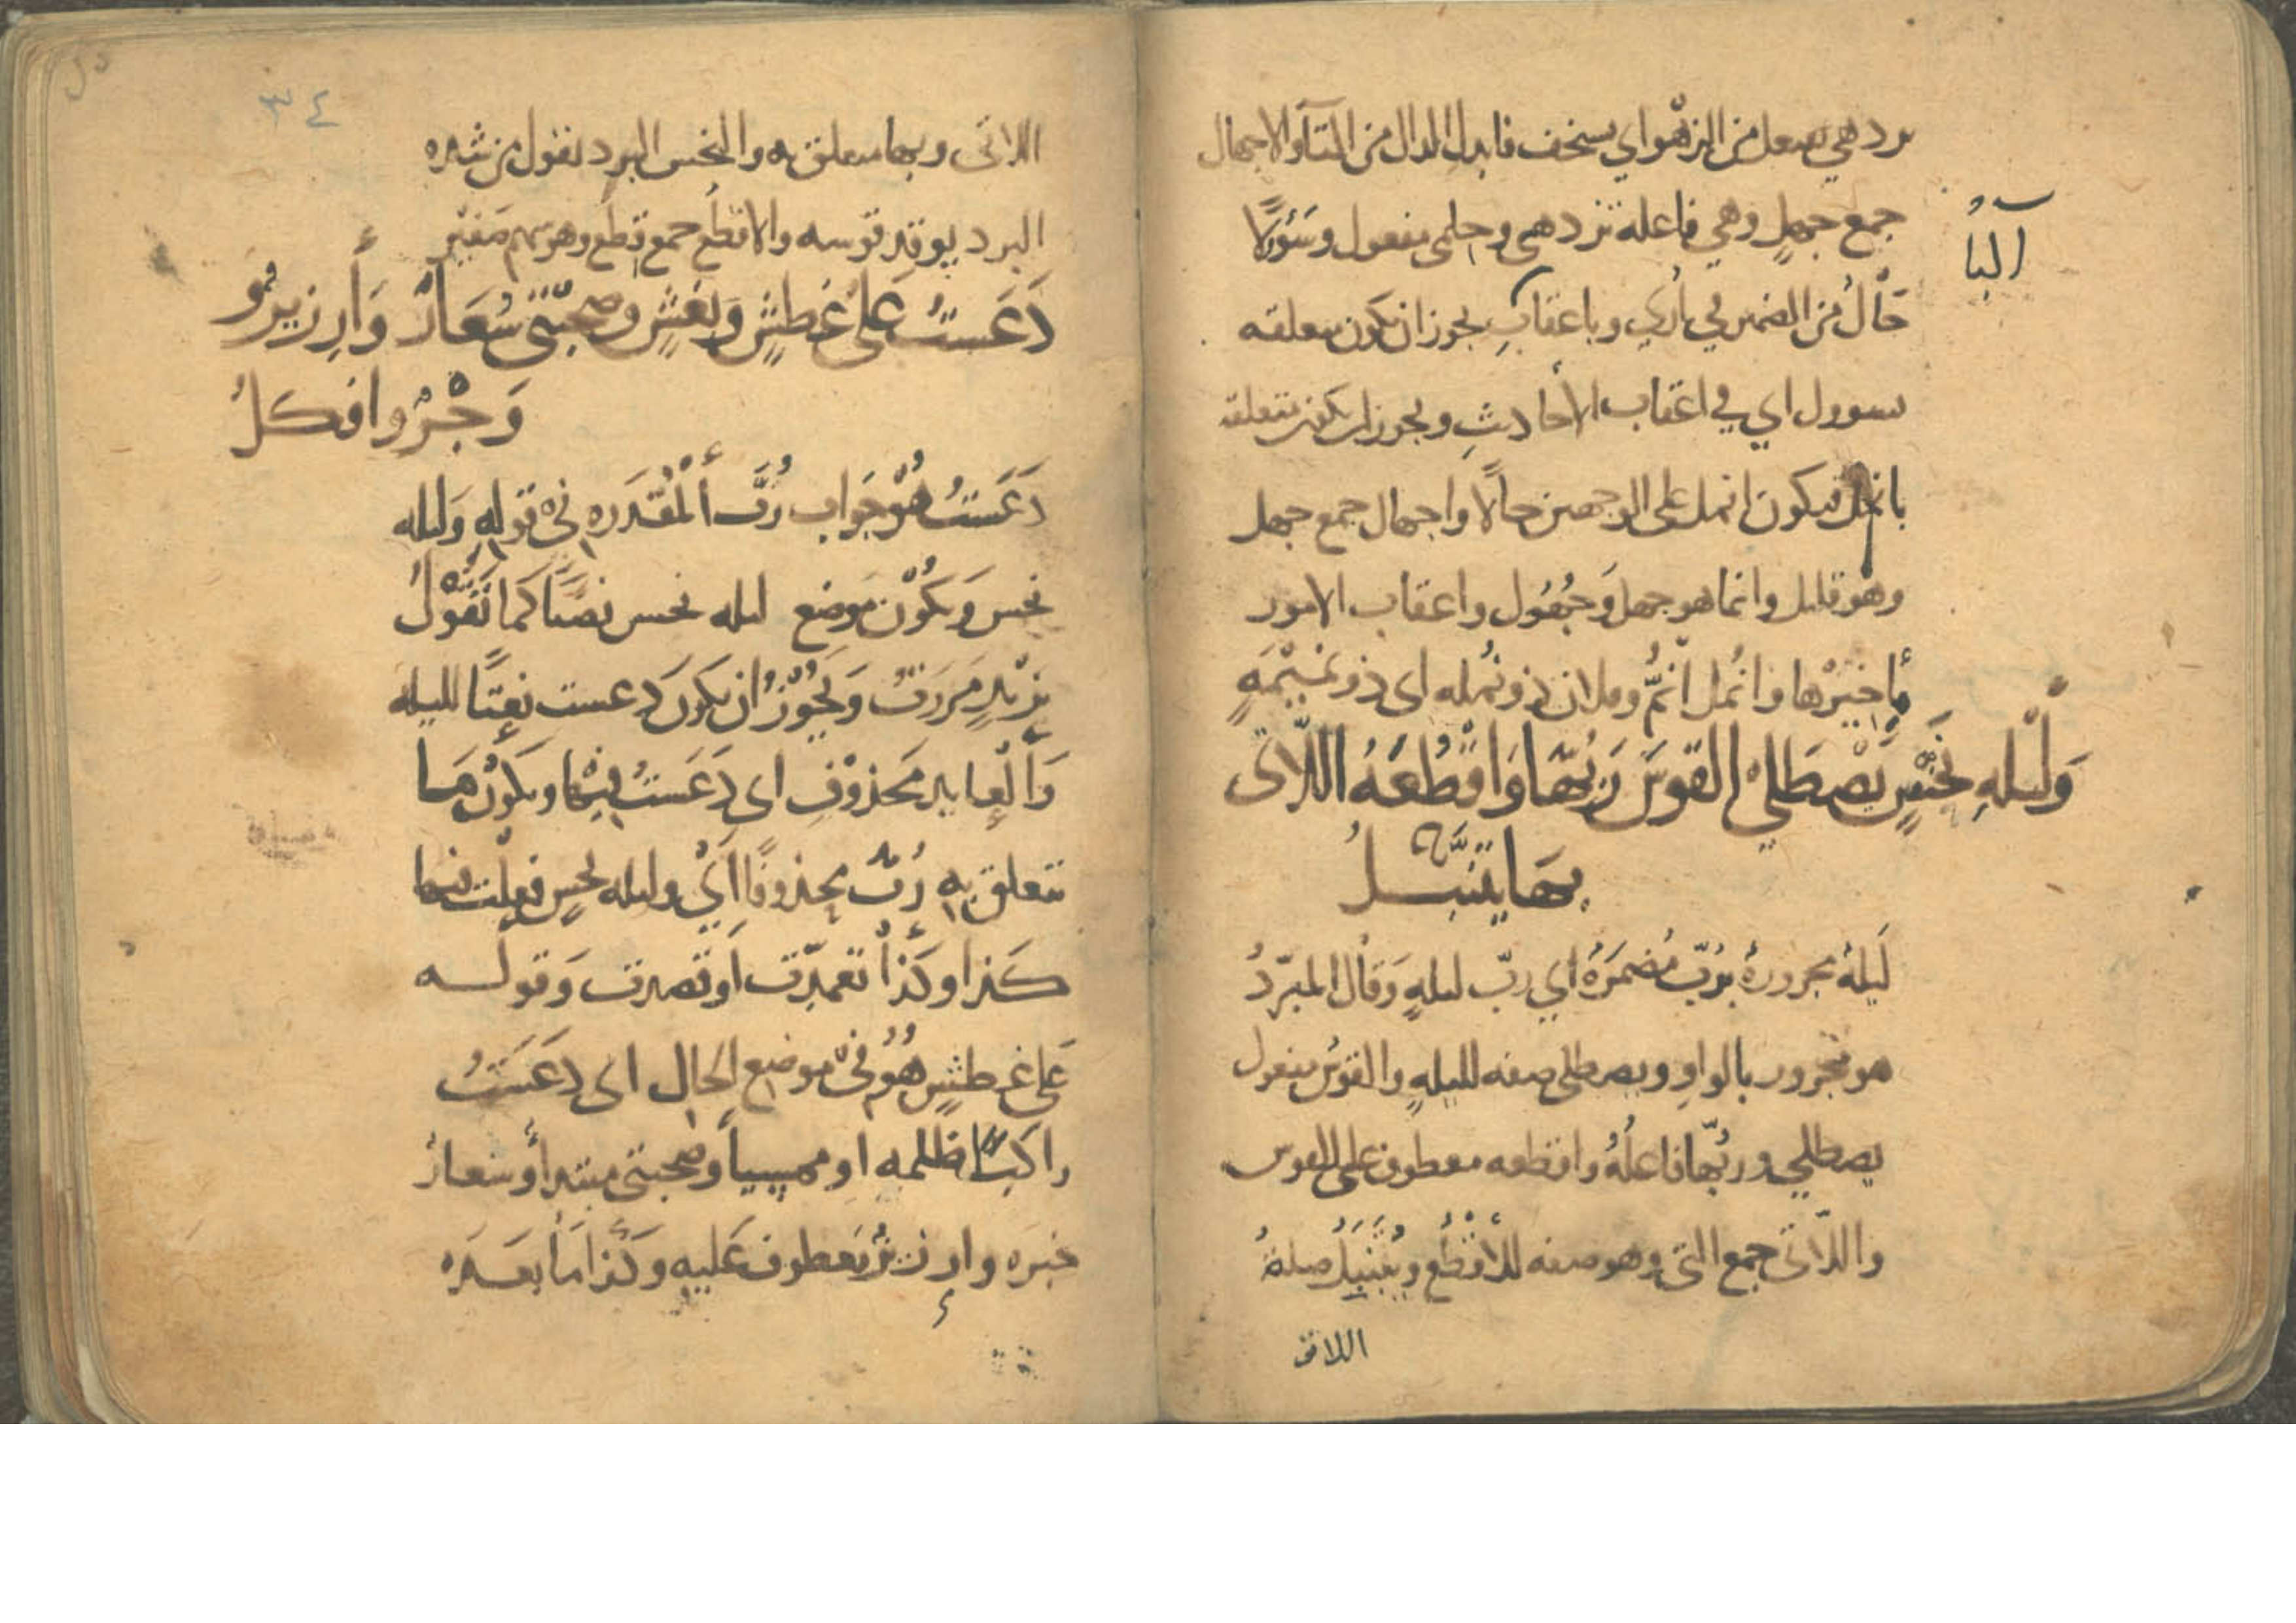 تزدهي تفتعل من الزهو اي يستخف فابدل الدال من التآ والاجهال
جمع جهلٍ وهي فاعلة تزدهى وحلمى مفعول وسَؤولًا
البآءُ
حَالٌ من الضمير في أُرَى وباعقابِ يجوز ان يكون متعلقه
سوول اي في اعقاب الأحاديثِ ويجوز ان يكون متعلقة
بانمل فيكون انمل على الوجهين حالًا واجهال جمع جهل
وهو قليل وانما هو جهل وَجُهُول واعقاب الامور
مأخيرها وانمل انمُّ وفلان ذو نُمله اى ذو نميمةٍ
وَلَيْلهِ نَحْسٍ يَصْطَلي القوسَ رَبُّهَا وَاقْطُعَهُ اللّاتى
بِهَا يَتَنَبَّلُ
لَيلة مجرورة برُبّ مُضمَرَةٌ اي ربّ ليلهٍ وَقال المبَرّدُ
هو مجرور بالواوِ ويصطلى صفه لليلهٍ والقوسَ مفعول
يصطلي وربّها فاعلُهُ واقطعه معطوف على القوس
واللّاتى جمع التى وهو صفه للأقْطُع ويَتَنَبَّلُ صلةُ
اللاتى
٣٤
اللاتى وبها متعلق به والنحس البرد يقول من شده
البرد يوقد قوسه والاقطُع جمع قِطْعِ وهو سهم صَغير
دَعَسْتُ عَلَى غَطشٍ وَبَغشٍ وصُحْبَتى سُعَارٌ وَأرزيزٌ و
وَجْرٌ وافكلُ
دَعَسْتُ هُوَ جَوَاب رُبَّ ألْمُقَدّره فى قولهِ وَليله
نحس وَيكُوْن موضع ليله نحس نصبًا كما تَقُوْلُ
بزيدٍ مَرَرتُ وَيَجُوْزُ ان يكونَ دعست نعتًا لليله
وَألْعايد مَحذوْف اى دَعَسْتُ فيْها ويكون مَا
تتعلق به رُبَّ محذوفًا أيْ وليله نحسٍ فعلت فيها
كذا وكَذا تعمدت أو قصدت وَقوله
عَلى غَطشٍ هُوَ فى موضع الحال اى دعَسْتُ
راكبًا ظلمه او مهيبياً وصحبتى مبتدأ وسعار
خبره وارزيز معطوف عَليهِ وكذا مَا بعده